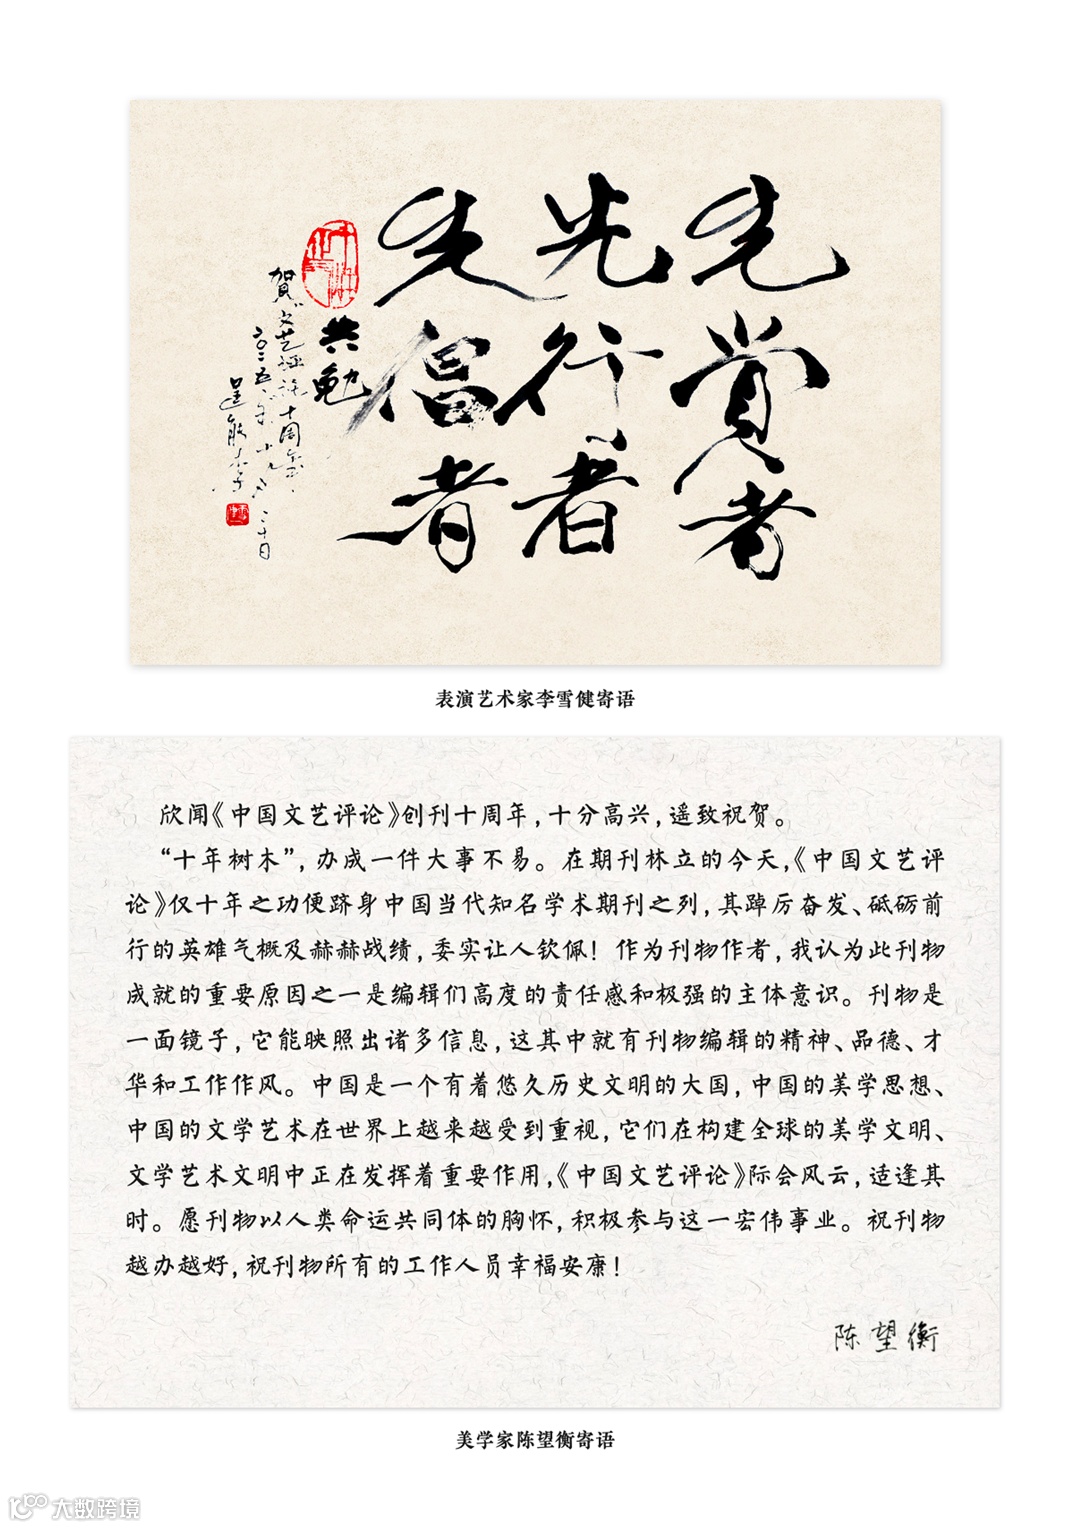 先觉者
先行者
先倡者
共勉
贺文艺评论十周年
二〇二五年十月二十日
表演艺术家李雪健寄语
欣闻《中国文艺评论》创刊十周年，十分高兴，遥致祝贺。
“十年树木”，办成一件大事不易。在期刊林立的今天，《中国文艺评
论》仅十年之功便跻身中国当代知名学术期刊之列，其踔厉奋发、砥砺前
行的英雄气概及赫赫战绩，委实让人钦佩！作为刊物作者，我认为此刊物
成就的重要原因之一是编辑们高度的责任感和极强的主体意识。刊物是
一面镜子，它能映照出诸多信息，这其中就有刊物编辑的精神、品德、才
华和工作作风。中国是一个有着悠久历史文明的大国，中国的美学思想、
中国的文学艺术在世界上越来越受到重视，它们在构建全球的美学文明、
文学艺术文明中正在发挥着重要作用，《中国文艺评论》际会风云，适逢其
时。愿刊物以人类命运共同体的胸怀，积极参与这一宏伟事业。祝刊物
越办越好，祝刊物所有的工作人员幸福安康！
陈望衡
美学家陈望衡寄语
大数跨境